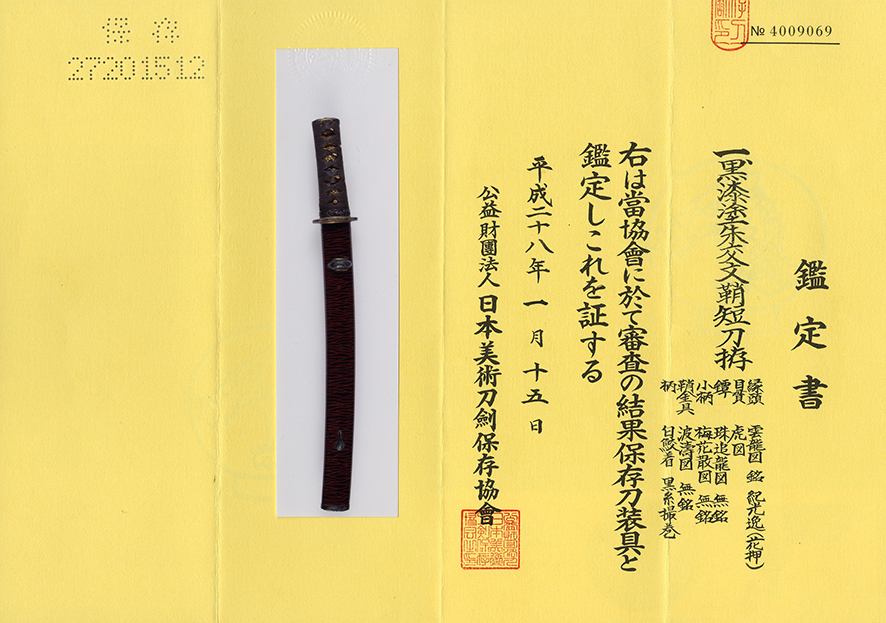 № 4009069
鑑定書
一、黒漆塗朱交文鞘短刀拵
縁頭 雲龍図 銘 紀光逸(花押)
目貫 虎図
鐔 珠追龍図 無銘
小柄 梅花散図 無銘
鞘金具 波濤図 無銘
柄 白鮫着 黒糸撮巻
右は當協會に於て審査の結果保存刀装具と
鑑定しこれを証する
平成二十八年一月十五日
公益財團法人日本美術刀劍保存協會
保存
27201512